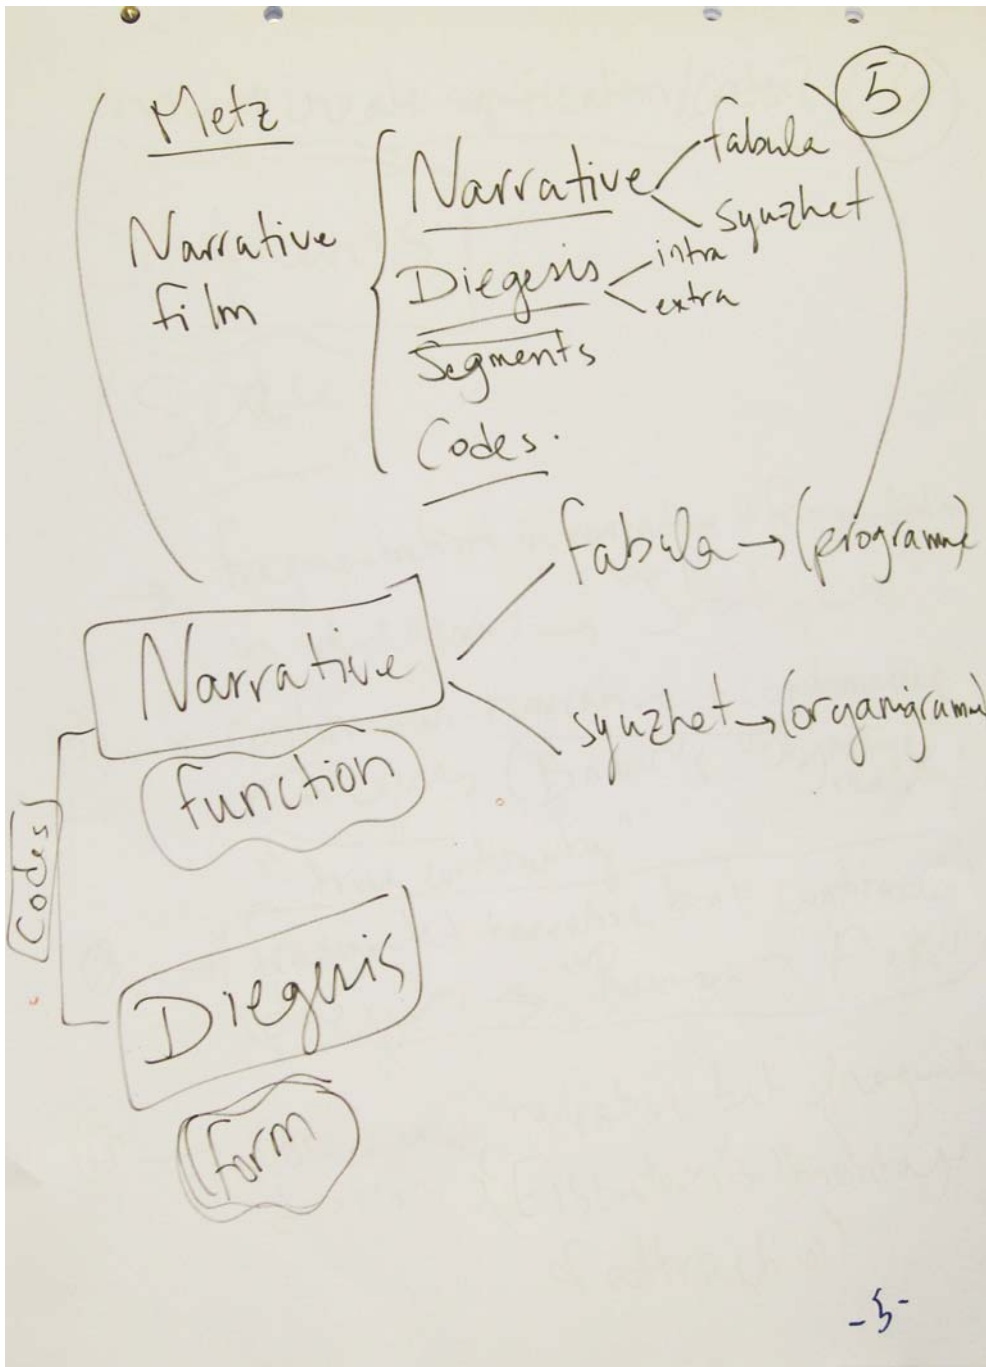 5
Metz
Narrative
film
Narrative
fabula
syuzhet
Diegesis
intra
extra
Segments
Codes.
Narrative
fabula → (programme)
syuzhet → (organigramme)
function
Codes
Diegesis
form
-5-